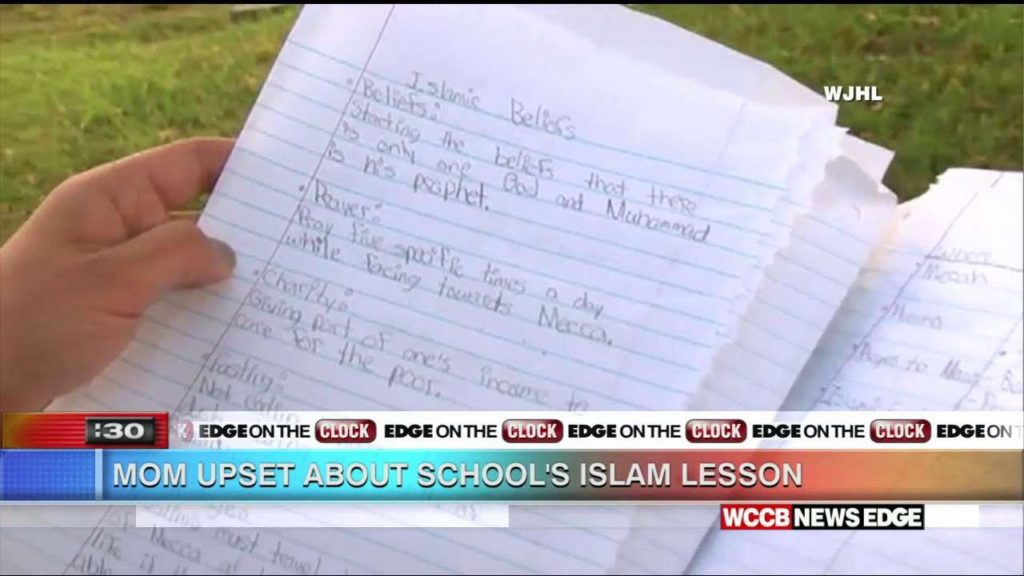 WJHL
Islamic Beliefs
• Beliefs:
Starting the beliefs that there
is only one God and Muhammad
is his prophet.
• Prayer:
Pray five times a day
while facing towards Mecca.
• Charity:
Giving part of one's income to
care for the poor.
• Fasting:
Not eating
must travel
Mecca at
life, if
able
• Mecah
:30
EDGE ON THE CLOCK EDGE ON THE CLOCK EDGE ON THE CLOCK EDGE ON THE CLOCK EDGE ON
MOM UPSET ABOUT SCHOOL'S ISLAM LESSON
WCCB NEWS EDGE